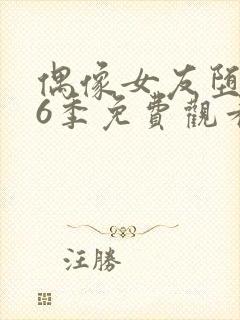 偶像女友堕
6季免費觀看
汪勝